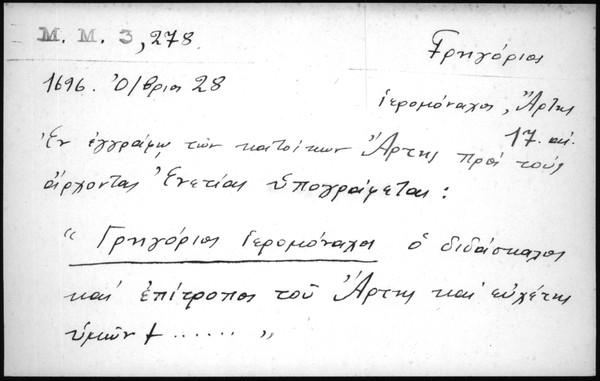 Μ. Μ. 3, 278.
Γρηγόριος
1696. Ὀ/βριος 28
ἱερομόναχος, Ἄρτης
17. αἰ.
Ἐν ἐγγράφῳ τῶν κατοίκων Ἄρτης πρὸς τοὺς
ἄρχοντας Ἐνετίας ὑπογράφεται:
" Γρηγόριος ἱερομόναχος ὁ διδάσκαλος
καὶ ἐπίτροπος τοῦ Ἄρτης καὶ εὐχέτης
ὑμῶν † ...... "